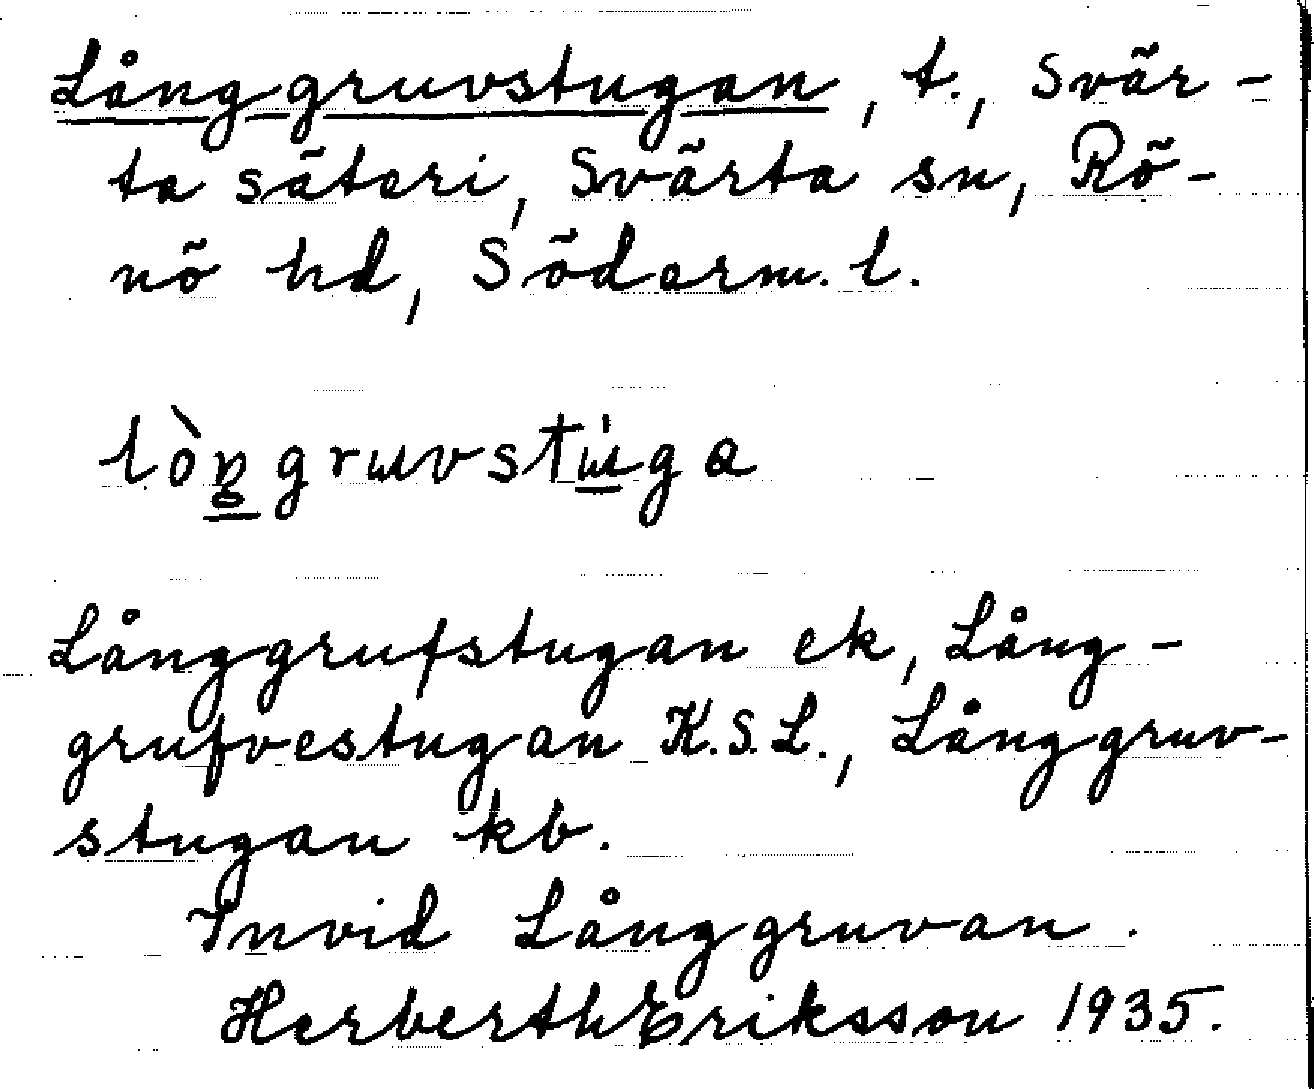 Långgruvstugan, t., Svär-
ta säteri, Svärta sn, Rö-
nö hd, Söderm. l.
lòŋgruvstúga
Långgrufstugan ek, Lång-
grufvestugan K.S.L., Långgruv-
stugan kb.
Invid Långgruvan.
Herberth Eriksson 1935.